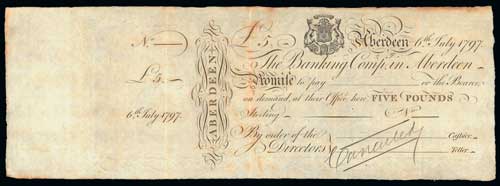 N.
£ 5
6th July 1797.
ABERDEEN
£ 5
Aberdeen 6th July 1797.
The Banking Comp.y in Aberdeen
Promise to pay or the Bearer
on demand, at their Office here FIVE POUNDS
Sterling
By order of the Cashier.
Directors Teller.
Cancelled